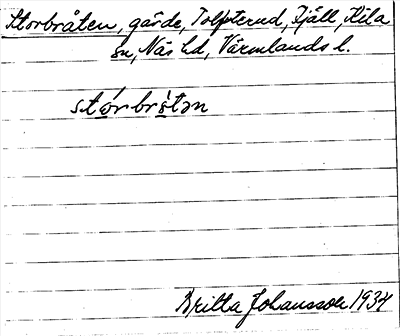 Storbråten, gärde, Tolpterud, Fjäll, Kila
sn, Näs hd, Värmlands l.
stórbrå̀tən
Britta Johansson 1934